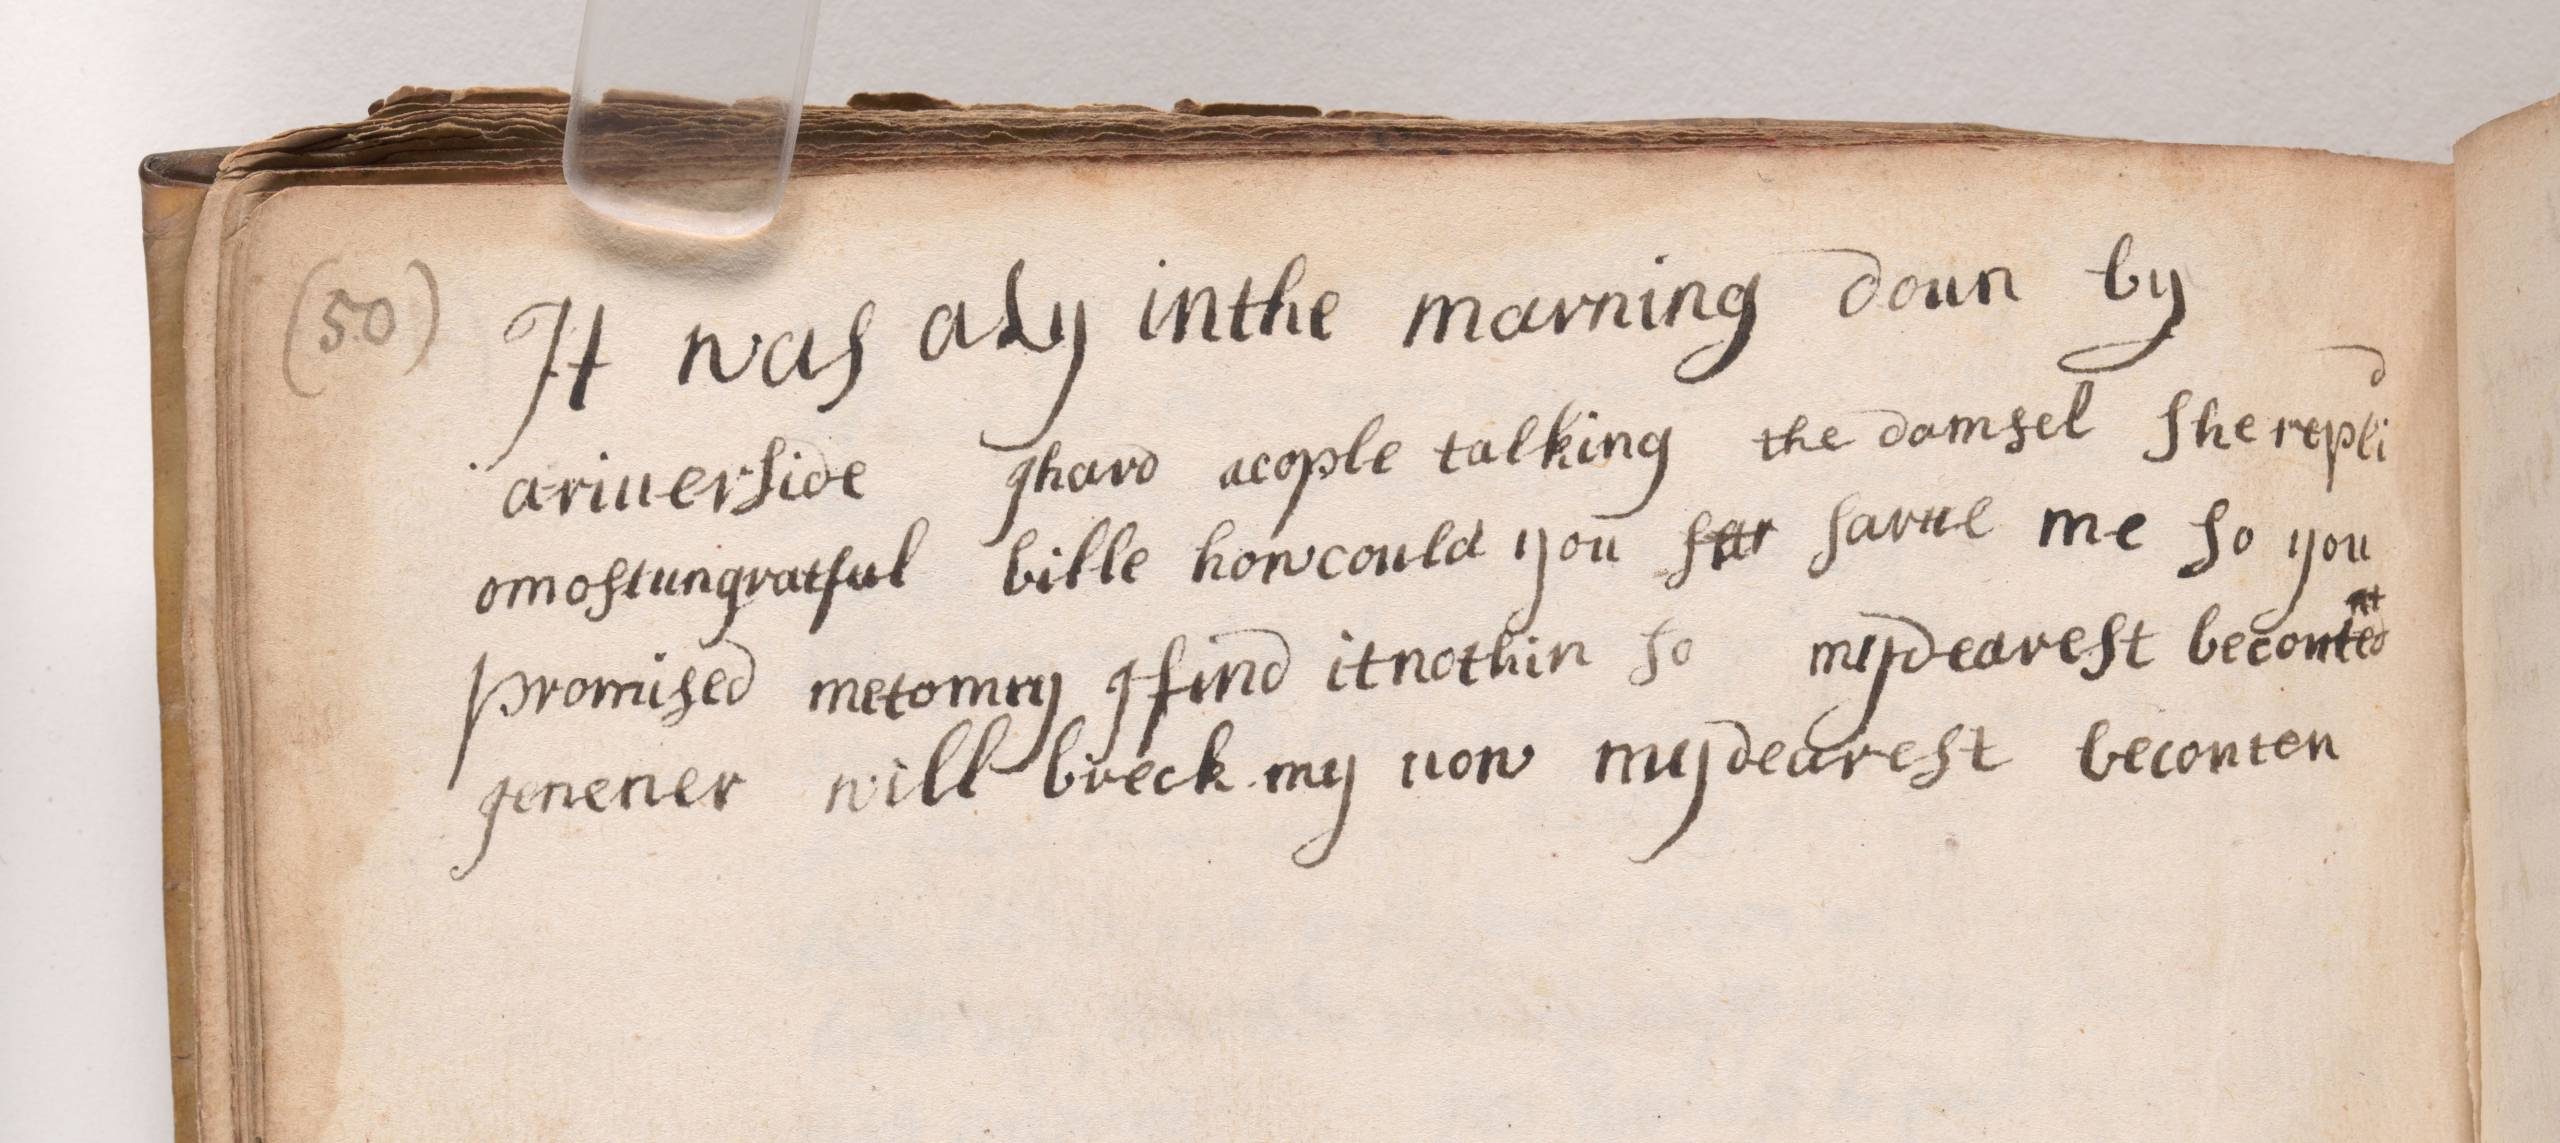 (50) It was aLy inthe marning doun by
ariuerside Jhard acople talking the damsel She replid
omostungratful bille howcould you sar sarue me so you
promised metomry J find itnothin so mydearest beconted nt
Jenener will breck my uow mydearest beconten